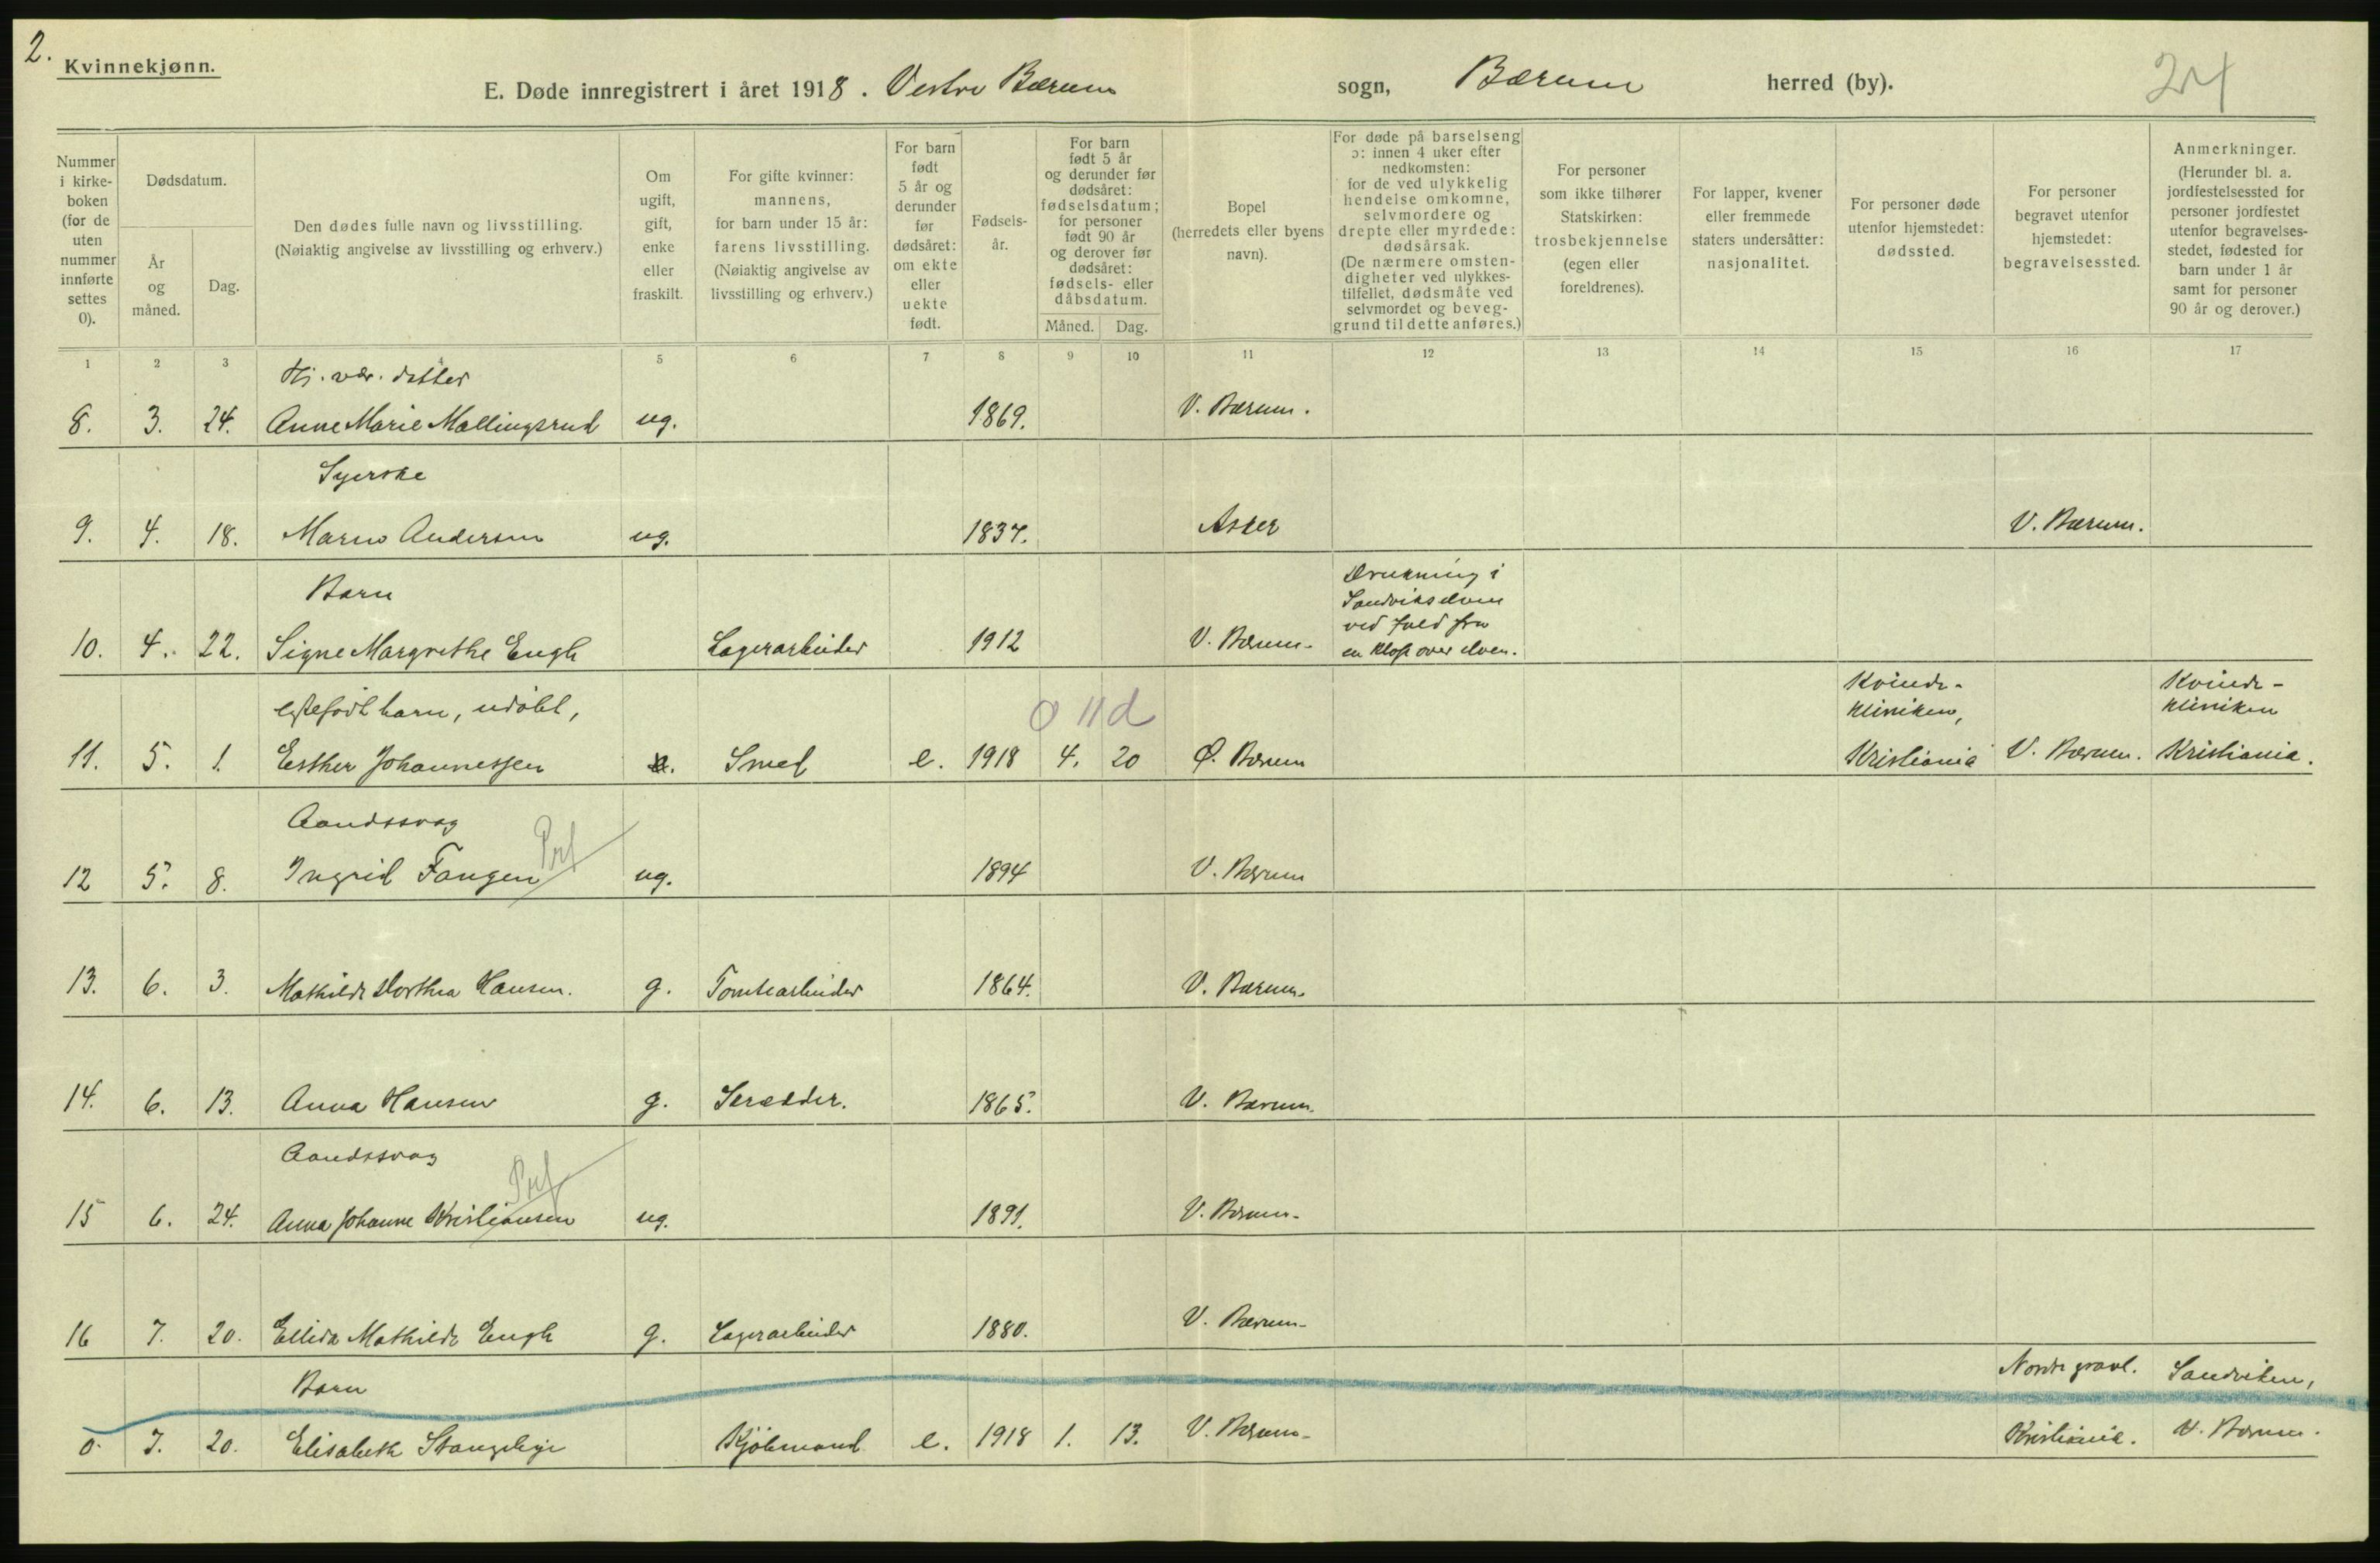 2.
Kvinnekjønn.
E. Døde innregistrert i året 1918. Vestre Bærum sogn, Bærum herred (by).
24
Nummer i kirke-boken (for de uten nummer innførte settes 0).
Dødsdatum.
År og måned.
Dag.
Den dødes fulle navn og livsstilling.
(Nøiaktig angivelse av livsstilling og erhverv.)
Om ugift, gift, enke eller fraskilt.
For gifte kvinner: mannens, for barn under 15 år: farens livsstilling. (Nøiaktig angivelse av livsstilling og erhverv.)
For barn født 5 år og derunder før dødsåret: om ekte eller uekte født.
Fødsels-år.
For barn født 5 år og derunder før dødsåret: fødselsdatum; for personer født 90 år og derover før dødsåret: fødsels- eller dåbsdatum.
Måned. Dag.
Bopel (herredets eller byens navn).
For døde på barselseng ɔ: innen 4 uker efter nedkomsten: for de ved ulykkelig hendelse omkomne, selvmordere og drepte eller myrdede: dødsårsak. (De nærmere omsten-digheter ved ulykkes-tilfellet, dødsmåte ved selvmordet og beveg-grund til dette anføres.)
For personer som ikke tilhører Statskirken: trosbekjennelse (egen eller foreldrenes).
For lapper, kvener eller fremmede staters undersåtter: nasjonalitet.
For personer døde utenfor hjemstedet: dødssted.
For personer begravet utenfor hjemstedet: begravelsessted.
Anmerkninger. (Herunder bl. a. jordfestelsessted for personer jordfestet utenfor begravelses-stedet, fødested for barn under 1 år samt for personer 90 år og derover.)
1 2 3 4 5 6 7 8 9 10 11 12 13 14 15 16 17
Hj. vær. datter
8. 3. 24. Anne Marie Mællingsrud ug. 1869. V. Bærum.
Syerske
9. 4. 18. Maren Andersen ug. 1837. Asker V. Bærum.
Barn
Drukning i
Sandvikselven
ved fald fra
10. 4. 22. Signe Margrethe Engh Lagerarbeider 1912 V. Bærum. en klop over elven.
0 11 d
Kvinde- Kvinde-
ektefødt barn, udøbt, kliniken, kliniken
11. 5. 1. Esther Johannessen Smed e. 1918 4. 20 Ø. Bærum Kristiania V. Bærum. Kristiania.
Aandssvag
12 5. 8. Ingrid Fangen ug. 1894 V. Bærum
13. 6. 3. Mathilde Dorthea Hansen. g. Tomtearbeider 1864. V. Bærum.
14. 6. 13. Anna Hansen g. Skrædder. 1865. V. Bærum.
Aandssvag
15 6. 24. Anna Johanne Kristiansen ug. 1891. V. Bærum.
16 7. 20. Ellida Mathilde Engh g. Lagerarbeider 1880. V. Bærum.
Barn Nordre gravl. Sandviken,
0. 7. 20. Elisabeth Stangebye Kjøbmand e. 1918 1. 13. V. Bærum. Kristiania. V. Bærum.